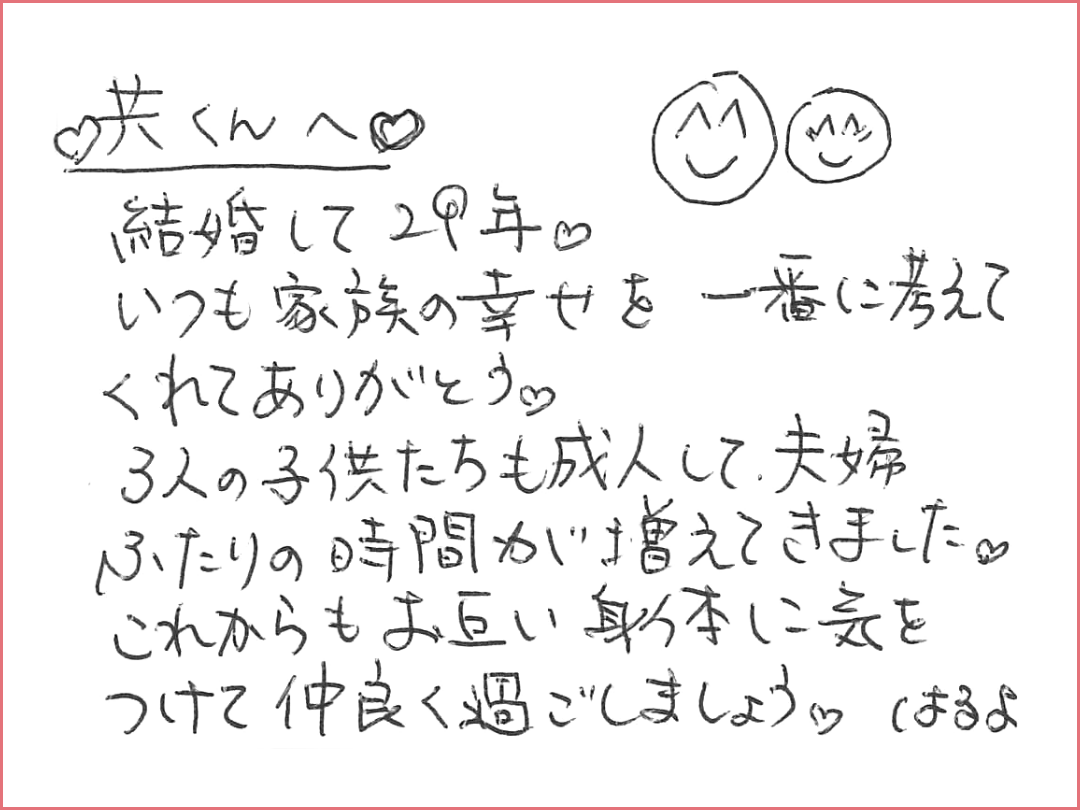 ♡共くんへ♡
結婚して29年♡
いつも家族の幸せを 一番に考えて
くれてありがとう♡
3人の子供たちも成人して、夫婦
ふたりの時間が増えてきました。♡
これからもお互い身体に気を
つけて仲良く過ごしましょう♡ はるよ